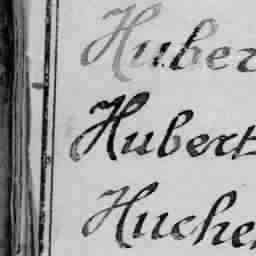 Huber
Hubert
Huche